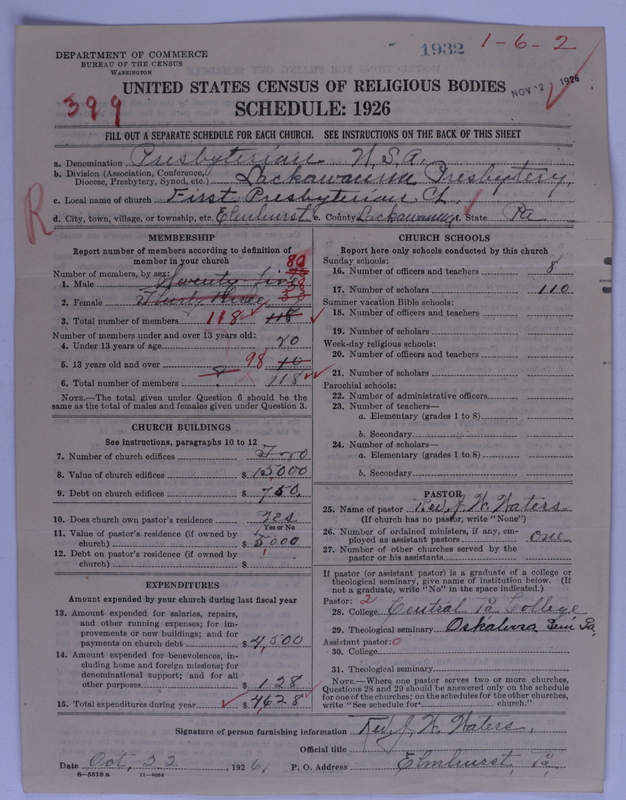 1932 1-6-2
DEPARTMENT OF COMMERCE
BUREAU OF THE CENSUS
WASHINGTON
UNITED STATES CENSUS OF RELIGIOUS BODIES
NOV 2 1926
399
SCHEDULE: 1926
FILL OUT A SEPARATE SCHEDULE FOR EACH CHURCH. SEE INSTRUCTIONS ON THE BACK OF THIS SHEET
a. Denomination Presbyterian U.S.A.
b. Division (Association, Conference, Diocese, Presbytery, Synod, etc.) Lackawanna Presbytery,
c. Local name of church First Presbyterian Ch.
R
d. City, town, village, or township, etc. Elmhurst e. County Lackawanna f. State Pa
MEMBERSHIP
Report number of members according to definition of
member in your church
Number of members, by sex: 80
1. Male Seventy-five
2. Female
3. Total number of members 118 118
Number of members under and over 13 years old:
4. Under 13 years of age 20
5. 13 years old and over 98
6. Total number of members 118
NOTE.—The total given under Question 6 should be the
same as the total of males and females given under Question 3.
CHURCH BUILDINGS
See instructions, paragraphs 10 to 12
7. Number of church edifices Two
8. Value of church edifices $ 15,000
9. Debt on church edifices $ 750.
10. Does church own pastor's residence Yes
Yes or No
11. Value of pastor's residence (if owned by
church) $ 5000
12. Debt on pastor's residence (if owned by
church) $
EXPENDITURES
Amount expended by your church during last fiscal year
13. Amount expended for salaries, repairs,
and other running expenses; for im-
provements or new buildings; and for
payments on church debt $ 4,500
14. Amount expended for benevolences, in-
cluding home and foreign missions; for
denominational support; and for all
other purposes $ 128
15. Total expenditures during year $ 4628
CHURCH SCHOOLS
Report here only schools conducted by this church
Sunday schools:
16. Number of officers and teachers 8
17. Number of scholars 110
Summer vacation Bible schools:
18. Number of officers and teachers
19. Number of scholars
Week-day religious schools:
20. Number of officers and teachers
21. Number of scholars
Parochial schools:
22. Number of administrative officers
23. Number of teachers—
a. Elementary (grades 1 to 8)
b. Secondary
24. Number of scholars—
a. Elementary (grades 1 to 8)
b. Secondary
PASTOR
25. Name of pastor Rev J. W. Waters
(If church has no pastor, write "None")
26. Number of ordained ministers, if any, em-
ployed as assistant pastors one
27. Number of other churches served by the
pastor or his assistants
If pastor (or assistant pastor) is a graduate of a college or
theological seminary, give name of institution below. (If
not a graduate, write "No" in the space indicated.)
Pastor: 2
28. College Central Pa College
29. Theological seminary Oskaloosa Sem
Assistant pastor: 0
30. College
31. Theological seminary
NOTE.—Where one pastor serves two or more churches,
Questions 28 and 29 should be answered only on the schedule
for one of the churches; on the schedules for the other churches,
write "See schedule for church."
Signature of person furnishing information Rev. J. W. Waters,
Official title
Date Oct, 22, 1926, P. O. Address Elmhurst, Pa,
8-5518 a 11-9064